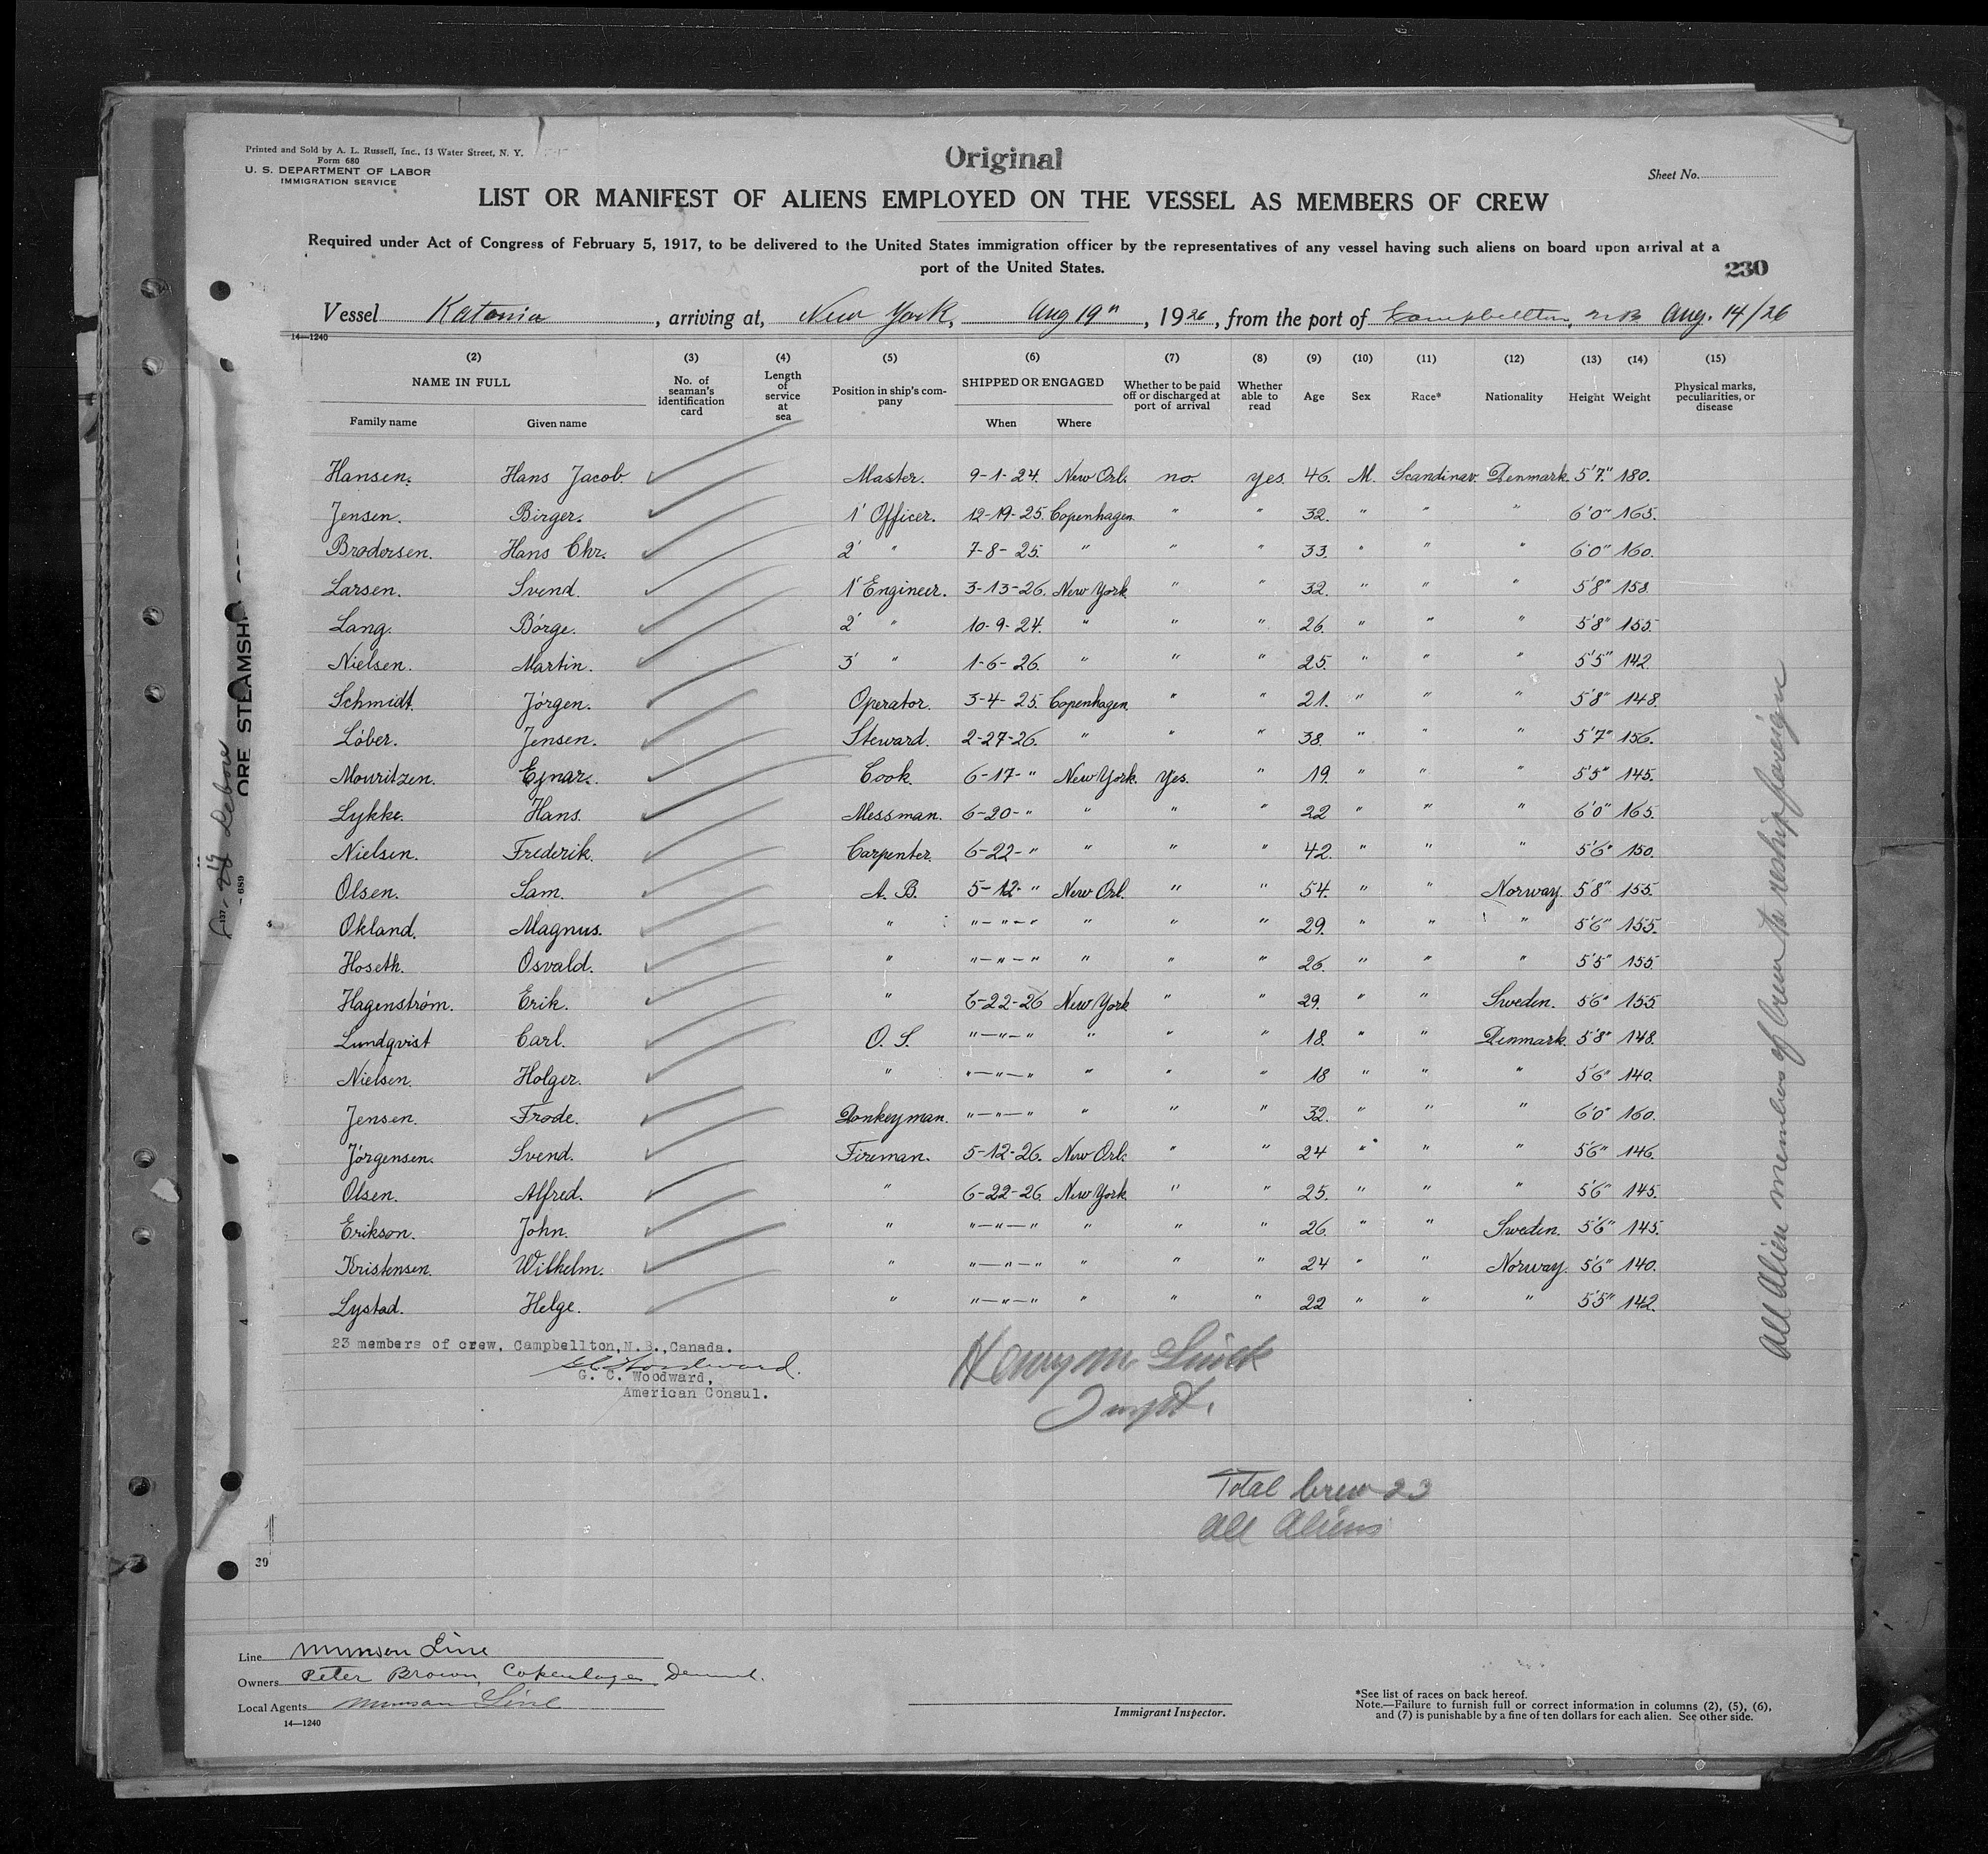 Printed and Sold by A. L. Russell, Inc., 13 Water Street, N. Y.
Form 680
U. S. DEPARTMENT OF LABOR
IMMIGRATION SERVICE
Original
Sheet No.
LIST OR MANIFEST OF ALIENS EMPLOYED ON THE VESSEL AS MEMBERS OF CREW
Required under Act of Congress of February 5, 1917, to be delivered to the United States immigration officer by the representatives of any vessel having such aliens on board upon arrival at a
port of the United States.
230
Vessel Katonia, arriving at, New York, Aug 19", 1926, from the port of Campbellton, NB Aug. 14/26
14—1240
(2) (3) (4) (5) (6) (7) (8) (9) (10) (11) (12) (13) (14) (15)
NAME IN FULL No. of seaman's identification card Length of service at sea Position in ship's company SHIPPED OR ENGAGED Whether to be paid off or discharged at port of arrival Whether able to read Age Sex Race* Nationality Height Weight Physical marks, peculiarities, or disease
Family name Given name When Where
Hansen. Hans Jacob. Master. 9-1-24. New Orl. no. yes. 46. M. Scandinav. Denmark. 5'7" 180.
Jensen. Birger. 1' Officer. 12-19-25. Copenhagen. " " 32. " " " 6'0" 165.
Brodersen. Hans Chr. 2' " 7-8-25. " " " 33. " " " 6'0" 160.
Larsen. Svend. 1' Engineer. 3-13-26. New York. " " 32. " " " 5'8" 158.
Lang. Börge. 2' " 10-9-24. " " " 26. " " " 5'8" 155.
Nielsen. Martin. 3' " 1-6-26. " " " 25. " " " 5'5" 142.
Schmidt. Jörgen. Operator. 3-4-25. Copenhagen. " " 21. " " " 5'8" 148.
Löber. Jensen. Steward. 2-27-26. " " " 38. " " " 5'7" 156.
Mouritzen. Ejnar. Cook. 6-17-" New York. Yes. " 19. " " " 5'5" 145.
Lykke. Hans. Messman. 6-20-" " " " 22 " " " 6'0" 165.
Nielsen. Frederik. Carpenter. 6-22-" " " " 42. " " " 5'6" 150.
Olsen. Sam. A. B. 5-12-" New Orl. " " 54. " " Norway. 5'8" 155.
Okland. Magnus. " "-"-" " " " 29. " " " 5'6" 155.
Hoseth. Osvald. " "-"-" " " " 26. " " " 5'5" 155.
Hagenström. Erik. " 6-22-26 New York " " 29. " " Sweden. 5'6" 155
Lundqvist Carl. O. S. "-"-" " " " 18. " " Denmark. 5'8" 148.
Nielsen. Holger. " "-"-" " " " 18 " " " 5'6" 140.
Jensen. Frode. Donkeyman. "-"-" " " " 32. " " " 6'0" 160.
Jörgensen. Svend. Fireman. 5-12-26. New Orl. " " 24 " " " 5'6" 146.
Olsen. Alfred. " 6-22-26. New York. " " 25. " " " 5'6" 145.
Erikson. John. " "-"-" " " " 26. " " Sweden. 5'6" 145.
Kristensen. Wilhelm. " "-"-" " " " 24 " " Norway. 5'6" 140.
Lystad. Helge. " "-"-" " " " 22 " " " 5'5" 142.
23 members of crew, Campbellton, N.B., Canada.
G. C. Woodward.
G. C. Woodward,
American Consul.
Total Crew 23
All Aliens
All Alien members of Crew to reship foreign
ORE STEAMSH
39
Line Munson Line
Owners Peter Brown, Copenhagen Denmark.
Local Agents Munson Line
14—1240
Immigrant Inspector.
*See list of races on back hereof.
Note.—Failure to furnish full or correct information in columns (2), (5), (6),
and (7) is punishable by a fine of ten dollars for each alien. See other side.